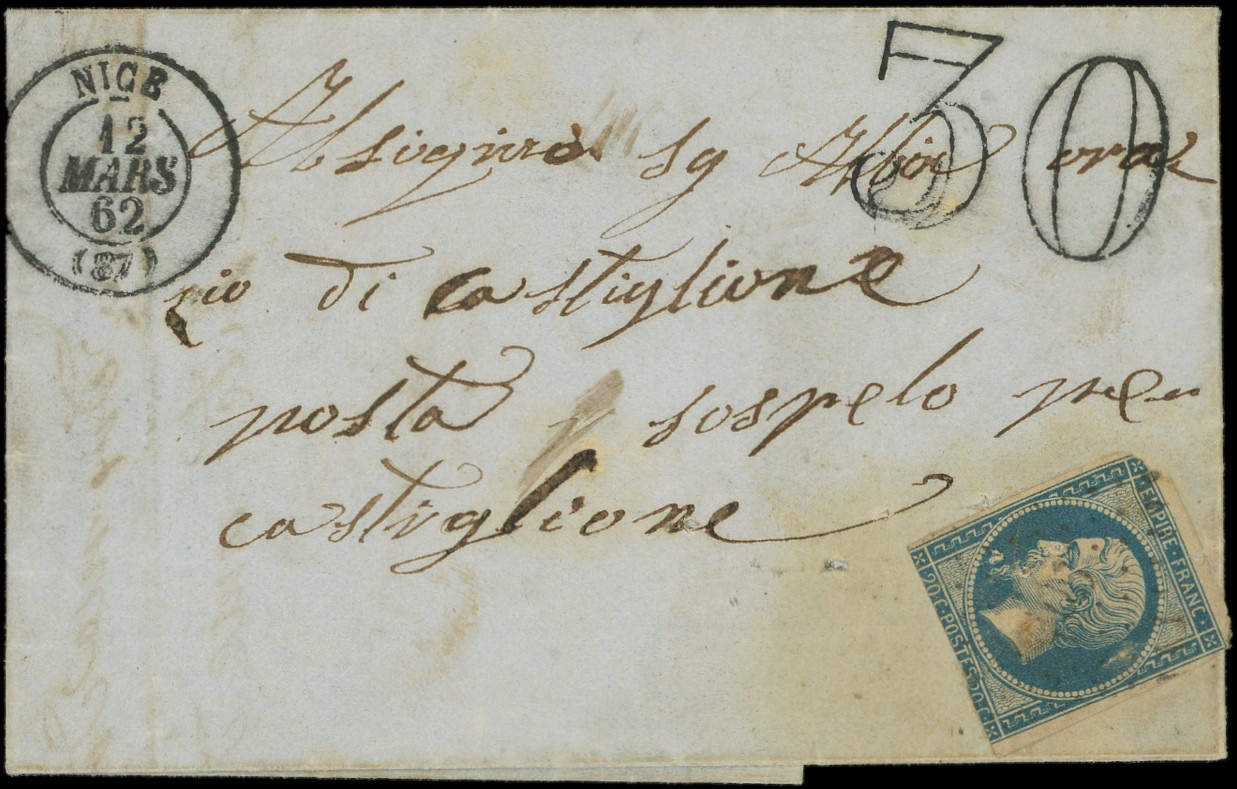 NICE
12
MARS
62
(87)
30
Al sigino sg
rio di Castiglione
posta p sospelo per
castiglione
EMPIRE · FRANC ·
20 C · POSTES 20 C